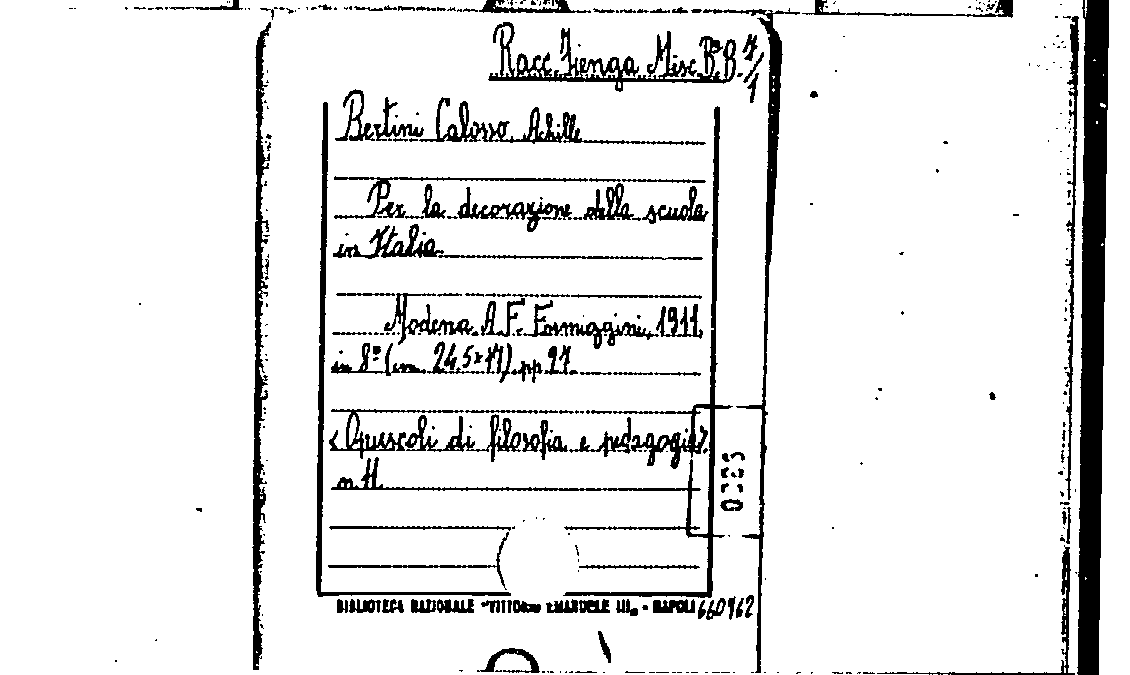 Racc. Fienga Misc. Bª B. 7/1
Bertini Calosso, Achille
Per la decorazione della scuola
in Italia.
Modena, A. F. Formiggini, 1911,
in 8º (cm. 24,5×17), pp. 97.
<Opuscoli di filosofia e pedagogia>,
n. 11.
BIBLIOTECA NAZIONALE "VITTORIO EMANUELE III„ - NAPOLI 660962